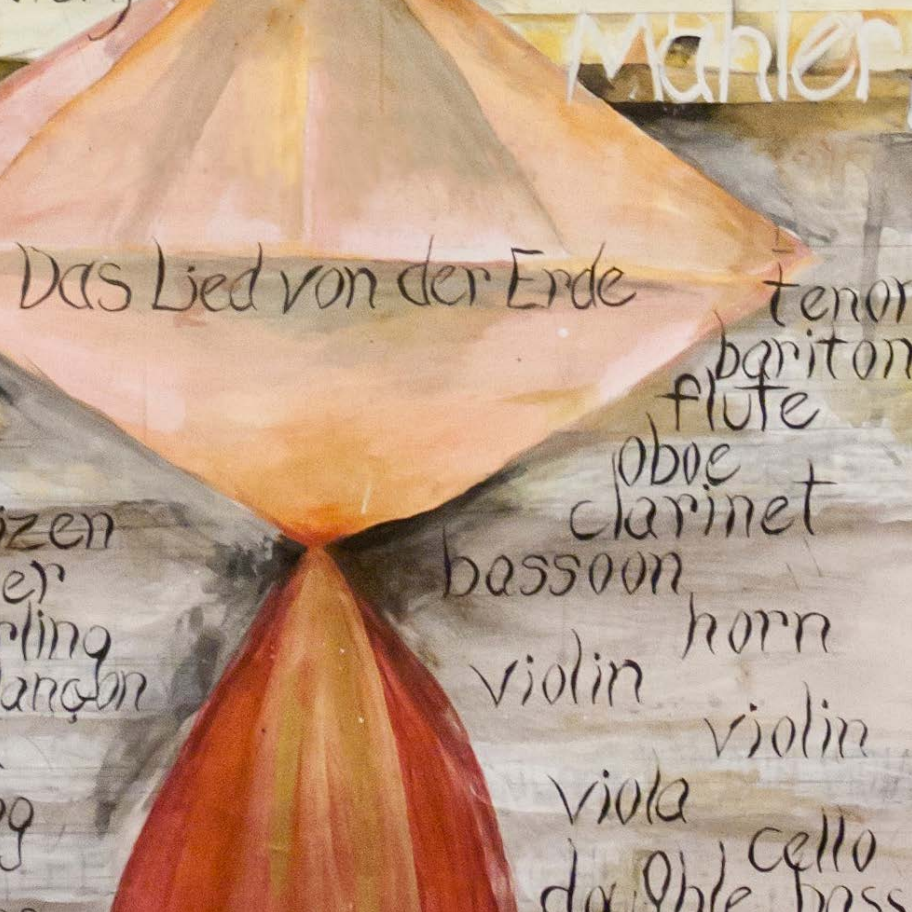 Mahler
Das Lied von der Erde
tenor
bariton
flute
oboe
clarinet
bassoon
horn
violin
violin
viola
cello
double bass